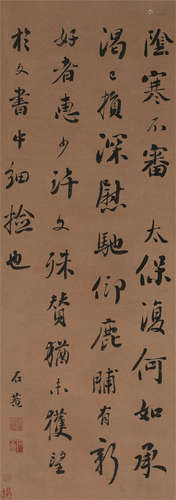 陰寒不審 太保復何如承
渴已損深慰馳仰鹿脯有新
好者惠少許文殊贊猶未獲望
於文書中細撿也
石菴